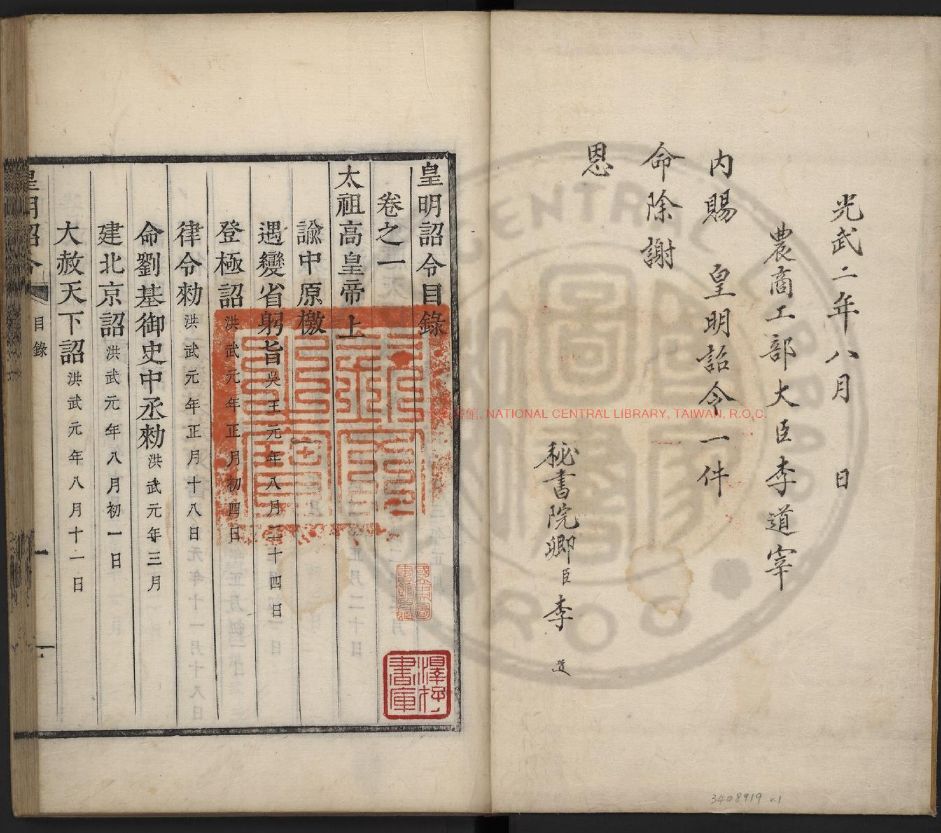 光武二年八月 日
農商工部大臣李道宰
內賜 皇明詔令一件
命除謝
恩
秘書院卿臣李
皇明詔令目錄
卷之一
太祖高皇帝上
諭中原檄
遇變省躬旨吳王元年八月二十四日
登極詔洪武元年正月初四日
律令勑洪武元年正月十八日
命劉基御史中丞勑洪武元年三月
建北京詔洪武元年八月初一日
大赦天下詔洪武元年八月十一日
皇明詔令 目錄 一
NATIONAL CENTRAL LIBRARY, TAIWAN, R.O.C.
澤存書庫
3408919 v.1